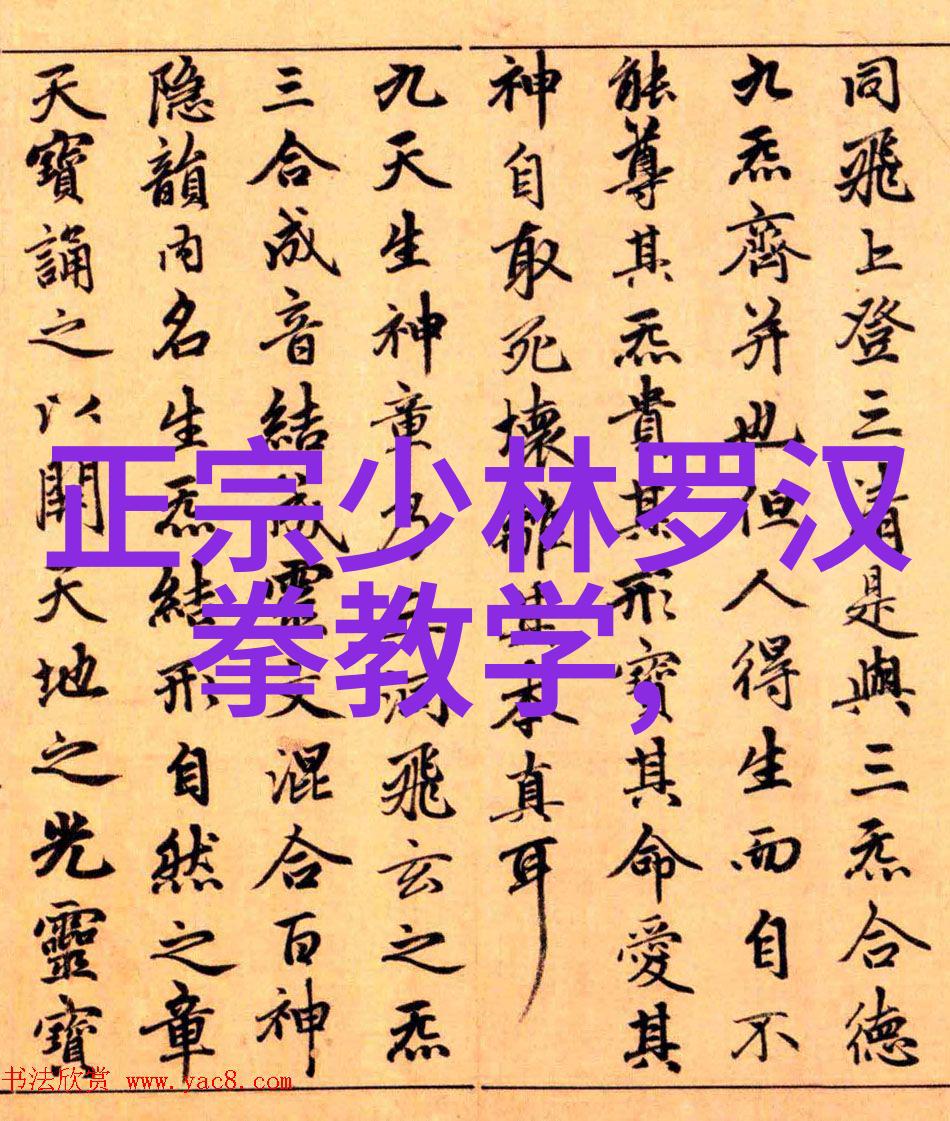 同飛上登三清是與三炁合德
九炁齊并也但人得生而自不
能尊其炁貴其形寶其命愛其
神自取死壞離其本真耳
九天生神章乃飛玄之炁
三合成音結成靈文混合百神
隱韻内名生炁結形自然之章
天寶誦之以開天地之光靈寶
正宗少林罗汉
拳教学,
书法欣赏 www.yac8.com